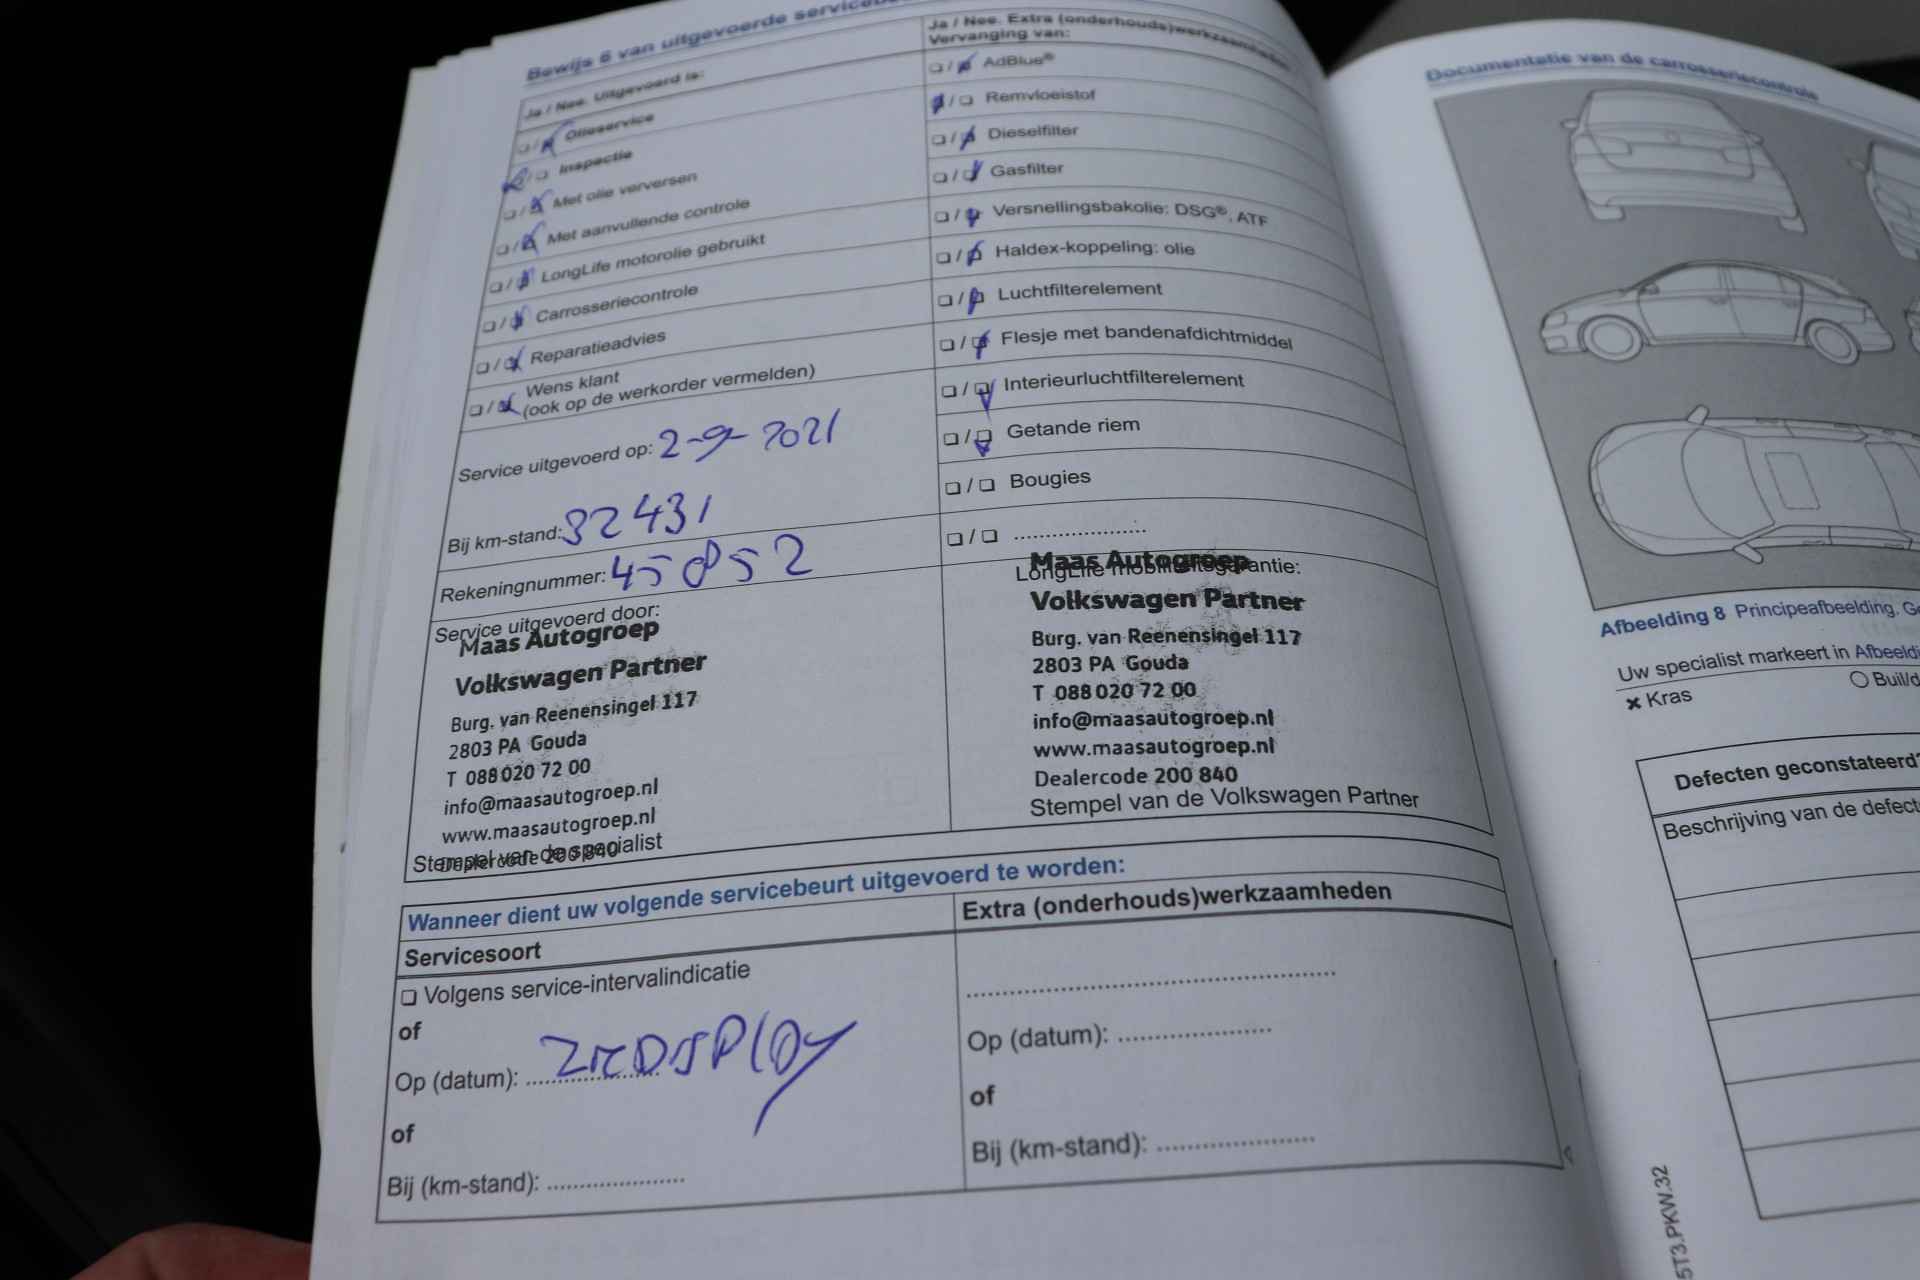 Bewijs 6 van uitgevoerde
Ja / Nee. Uitgevoerd is:
❑ / ❑ Olieservice
❑ / ❑ Inspectie
❑ / ❑ Met olie verversen
❑ / ❑ Met aanvullende controle
❑ / ❑ LongLife motorolie gebruikt
❑ / ❑ Carrosseriecontrole
❑ / ❑ Reparatieadvies
❑ / ❑ Wens klant
(ook op de werkorder vermelden)
Service uitgevoerd op: 2-9-2021
Bij km-stand: 32431
Rekeningnummer: 45852
Service uitgevoerd door:
Maas Autogroep
Volkswagen Partner
Burg. van Reenensingel 117
2803 PA Gouda
T 088 020 72 00
info@maasautogroep.nl
www.maasautogroep.nl
Dealercode 200 840
Stempel van de specialist
Ja / Nee. Extra (onderhouds)werkzaamheden
Vervanging van:
❑ / ❑ AdBlue®
❑ / ❑ Remvloeistof
❑ / ❑ Dieselfilter
❑ / ❑ Gasfilter
❑ / ❑ Versnellingsbakolie: DSG®, ATF
❑ / ❑ Haldex-koppeling: olie
❑ / ❑ Luchtfilterelement
❑ / ❑ Flesje met bandenafdichtmiddel
❑ / ❑ Interieurluchtfilterelement
❑ / ❑ Getande riem
❑ / ❑ Bougies
❑ / ❑ ....................
Maas Autogroep
LongLife mobiliteitsgarantie:
Volkswagen Partner
Burg. van Reenensingel 117
2803 PA Gouda
T 088 020 72 00
info@maasautogroep.nl
www.maasautogroep.nl
Dealercode 200 840
Stempel van de Volkswagen Partner
Wanneer dient uw volgende servicebeurt uitgevoerd te worden:
Servicesoort
❑ Volgens service-intervalindicatie
of
Op (datum): ....................
of
Bij (km-stand): ....................
Extra (onderhouds)werkzaamheden
..................................................
Op (datum): ......................
of
Bij (km-stand): ......................
Documentatie van de carrosseriecontrole
Afbeelding 8 Principeafbeelding.
Uw specialist markeert in
✖ Kras
○
Defecten geconstateerd?
Beschrijving van de
5T3.PKW.32